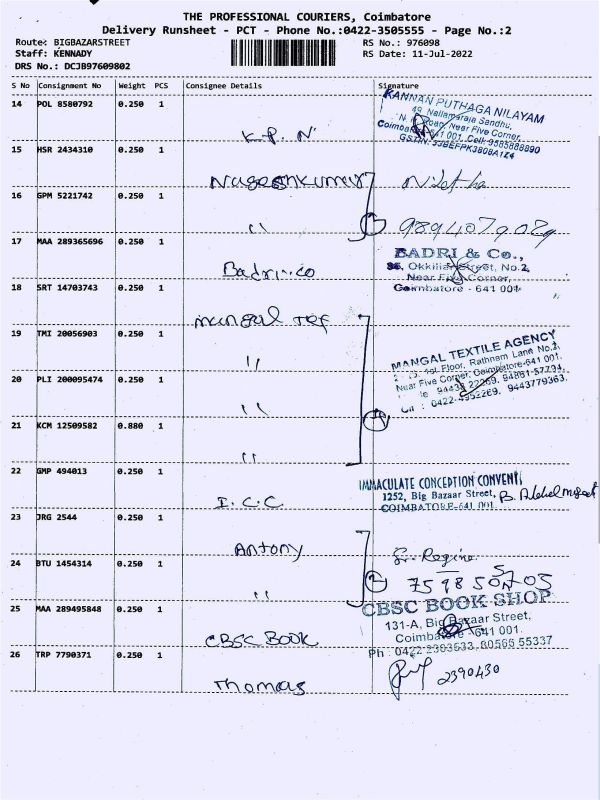 THE PROFESSIONAL COURIERS, Coimbatore
Delivery Runsheet - PCT - Phone No.:0422-3505555 - Page No.:2
Route: BIGBAZARSTREET
Staff: KENNADY
DRS No.: DCJB97609802
RS No.: 976098
RS Date: 11-Jul-2022
S No Consignment No Weight PCS Consignee Details Signature
14 POL 8580792 0.250 1 K.P.N
KANNAN PUTHAGA NILAYAM
49, Nallamaraja Sandhu,
Near Five Corner,
641 001. Cell: 9585888890
15 HSR 2434310 0.250 1 Nageshkumar
16 GPM 5221742 0.250 1 "
9894079029
17 MAA 289365696 0.250 1 Badri.co
BADRI & Co.,
Okkiliar Street, No.2,
Near Five Corner,
Coimbatore - 641 001
18 SRT 14703743 0.250 1 mangal Tex
19 TMI 20056903 0.250 1 "
20 PLI 200095474 0.250 1 "
21 KCM 12509582 0.880 1 "
MANGAL TEXTILE AGENCY
1st Floor, Rathnam Lane No.3,
Near Five Corner, Coimbatore-641 001.
22 GMP 494013 0.250 1 I.C.C
IMMACULATE CONCEPTION CONVENT
1252, Big Bazaar Street,
COIMBATORE-641 001.
23 JRG 2544 0.250 1 Antony
24 BTU 1454314 0.250 1 "
Sr. Regina
25 MAA 289495848 0.250 1 CBSC BOOK
CBSC BOOK SHOP
131-A, Big Bazaar Street,
Coimbatore - 641 001.
Ph : 0422-2393633, 80568 55337
26 TRP 7790371 0.250 1 Thomas
2390430